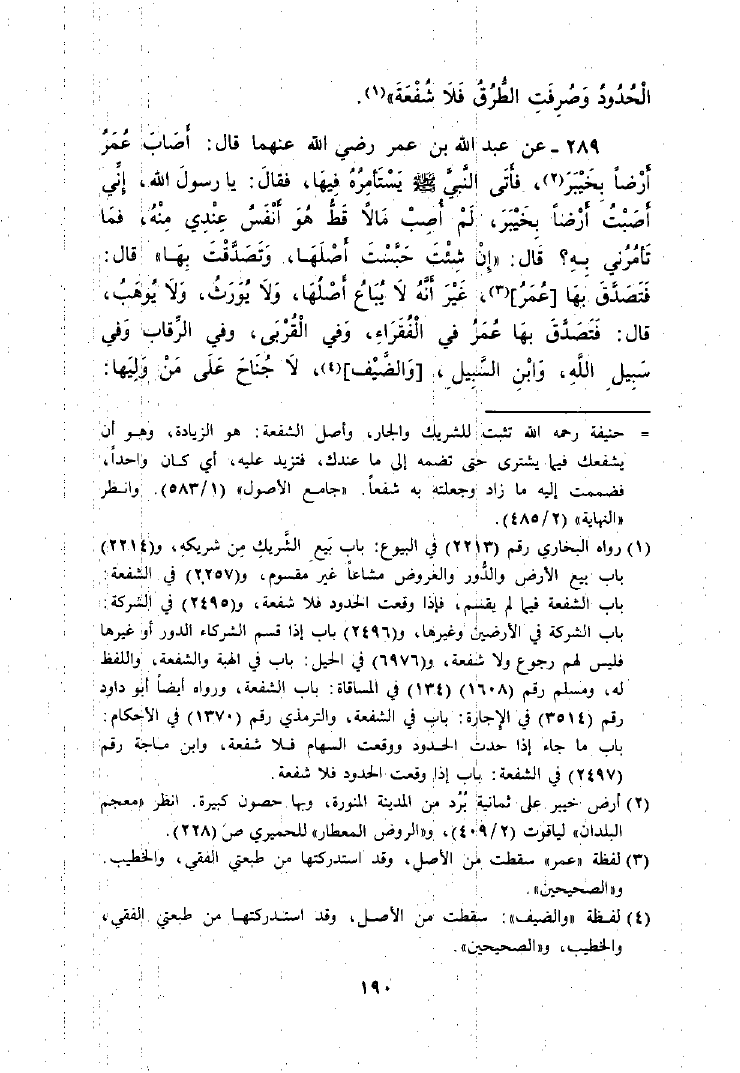 الْحُدُودُ وَصُرِفَتِ الطُّرُقُ فَلَا شُفْعَةَ»(١).
٢٨٩ ـ عن عبد الله بن عمر رضي الله عنهما قال: أَصَابَ عُمَرُ
أَرْضاً بِخَيْبَرَ(٢)، فَأَتَى النَّبِيَّ ﷺ يَسْتَأْمِرُهُ فِيهَا، فقالَ: يا رسولَ الله، إِنِّي
أَصَبْتُ أَرْضاً بِخَيْبَرَ، لَمْ أُصِبْ مَالاً قَطُّ هُوَ أَنْفَسُ عِنْدِي مِنْهُ، فمَا
تَأْمُرُني بِهِ؟ قال: «إِنْ شِئْتَ حَبَّسْتَ أَصْلَهَا، وَتَصَدَّقْتَ بِهَا» قال:
فَتَصَدَّقَ بِهَا [عُمَرُ](٣)، غَيْرَ أَنَّهُ لَا يُبَاعُ أَصْلُهَا، وَلَا يُورَثُ، وَلَا يُوهَبُ،
قال: فَتَصَدَّقَ بها عُمَرُ في الْفُقَرَاءِ، وَفي الْقُرْبَى، وفي الرِّقابِ وَفي
سَبِيلِ اللَّهِ، وَابْنِ السَّبِيلِ، [وَالضَّيْفِ](٤)، لَا جُنَاحَ عَلَى مَنْ وَلِيَها:
= حنيفة رحمه الله تثبت للشريك والجار، وأصل الشفعة: هو الزيادة، وهو أن
يشفعك فيما يشترى حتى تضمه إلى ما عندك، فتزيد عليه، أي كان واحداً،
فضممت إليه ما زاد وجعلته به شفعاً. «جامع الأصول» (٥٨٣/١). وانظر
«النهاية» (٤٨٥/٢).
(١) رواه البخاري رقم (٢٢١٣) في البيوع: باب بَيع الشَّريكِ مِن شريكهِ، و(٢٢١٤)
باب بيع الأرض والدُّور والعُروض مشاعاً غير مقسوم، و(٢٢٥٧) في الشفعة:
باب الشفعة فيما لم يقسم، فإذا وقعت الحدود فلا شفعة، و(٢٤٩٥) في الشركة:
باب الشركة في الأرضين وغيرها، و(٢٤٩٦) باب إذا قسم الشركاء الدور أو غيرها
فليس لهم رجوع ولا شفعة، و(٦٩٧٦) في الحيل: باب في الهبة والشفعة، واللفظ
له، ومسلم رقم (١٦٠٨) (١٣٤) في المساقاة: باب الشفعة، ورواه أيضاً أبو داود
رقم (٣٥١٤) في الإجارة: باب في الشفعة، والترمذي رقم (١٣٧٠) في الأحكام:
باب ما جاء إذا حدت الحدود ووقعت السهام فلا شفعة، وابن ماجة رقم
(٢٤٩٧) في الشفعة: باب إذا وقعت الحدود فلا شفعة.
(٢) أرض خيبر على ثمانية بُرُد من المدينة المنورة، وبها حصون كبيرة. انظر «معجم
البلدان» لياقوت (٤٠٩/٢)، و«الروض المعطار» للحميري ص (٢٢٨).
(٣) لفظة «عمر» سقطت من الأصل، وقد استدركتها من طبعتي الفقي، والخطيب.
و«الصحيحين».
(٤) لفظة «والضيف»: سقطت من الأصل، وقد استدركتها من طبعتي الفقي،
والخطيب، و«الصحيحين».
١٩٠